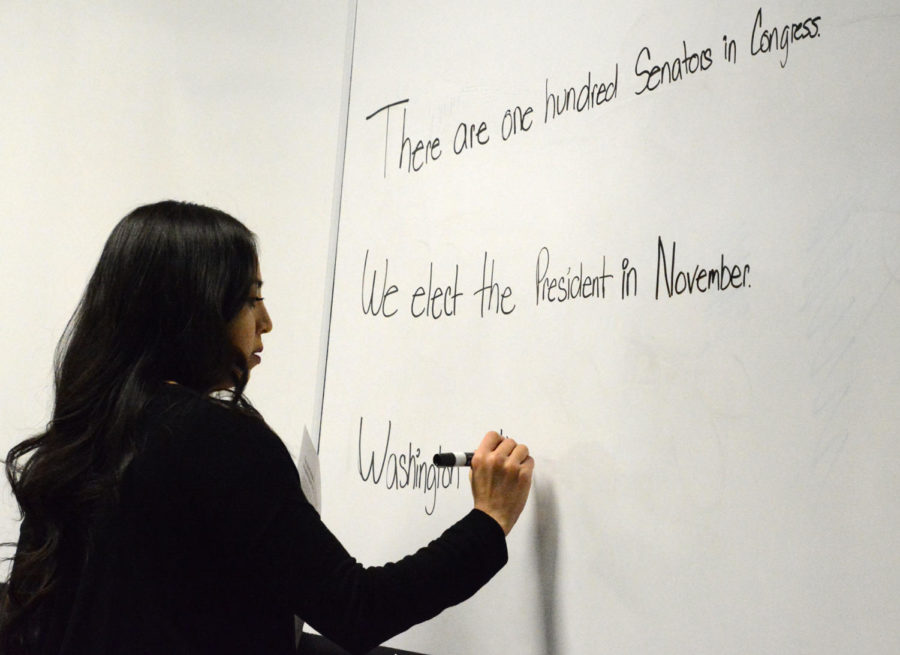 There are one hundred Senators in Congress.
We elect the President in November.
Washington